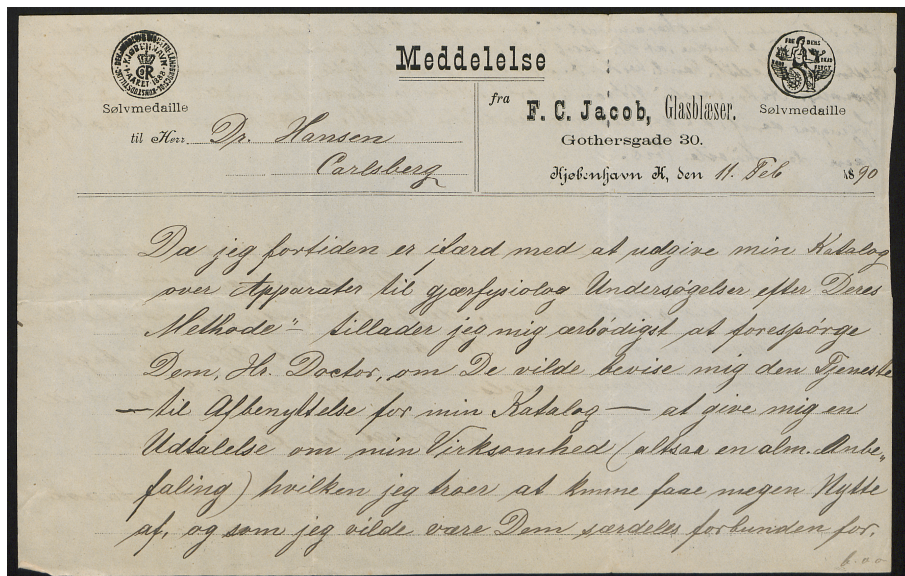 Meddelelse
Sølvmedaille
fra
F. C. Jacob, Glasblæser.
Sølvmedaille
til Herr Dr. Hansen
Carlsberg
Gothersgade 30.
Kjøbenhavn K, den 11. Feb 1890
Da jeg fortiden er ifærd med at udgive min Katalog
over Apparater til gjærfysiolog Undersøgelser efter Deres
Methode" - tillader jeg mig ærbödigst at forespörge
Dem, Hr. Doctor, om De vilde bevise mig den Tjeneste
— til Afbenyttelse for min Katalog — at give mig en
Udtalelse om min Virksomhed (altsaa en alm. Anbe„
faling) hvilken jeg troer at kunne faae megen Nytte
af, og som jeg vilde være Dem særdeles forbunden for.